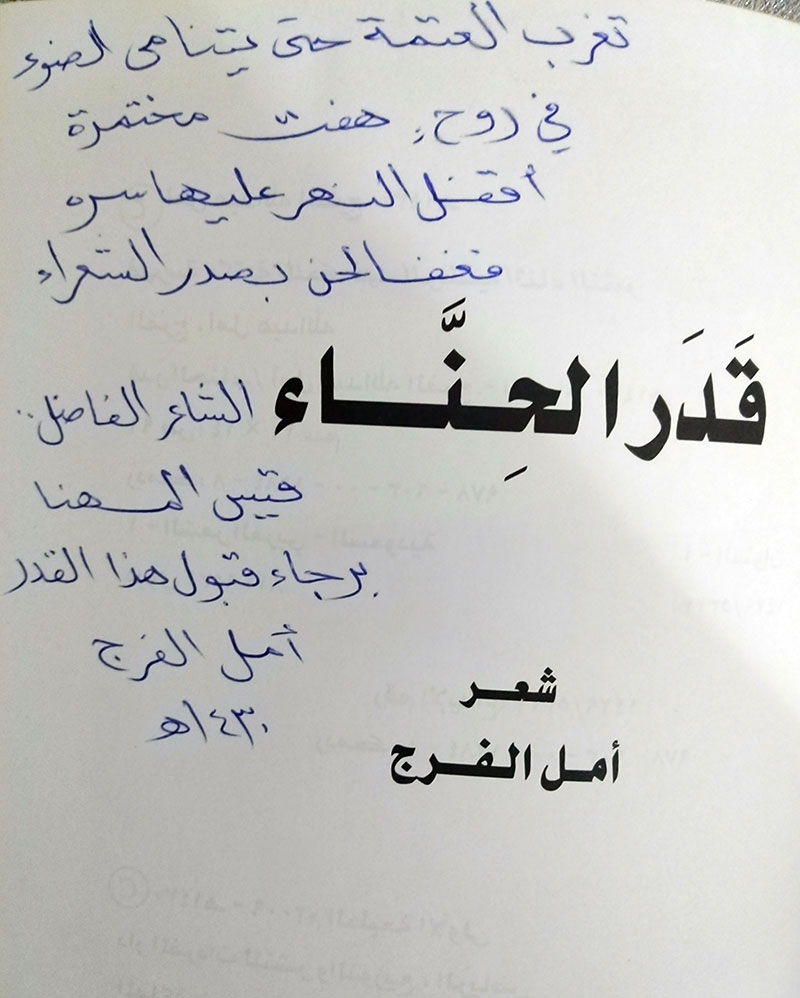 تغرب العتمة حتى يتنامى الضوء
في روحٍ هفت مختمرة
أقفل السهر عليها سره
فغفا لحن بصدر الشعراء
قَدَر الحِنَّاء
الشاعر الفاضل..
قيس المهنا
برجاء قبول هذا القدر
أمل الفرج
١٤٣٠هـ
شعر
أمل الفرج